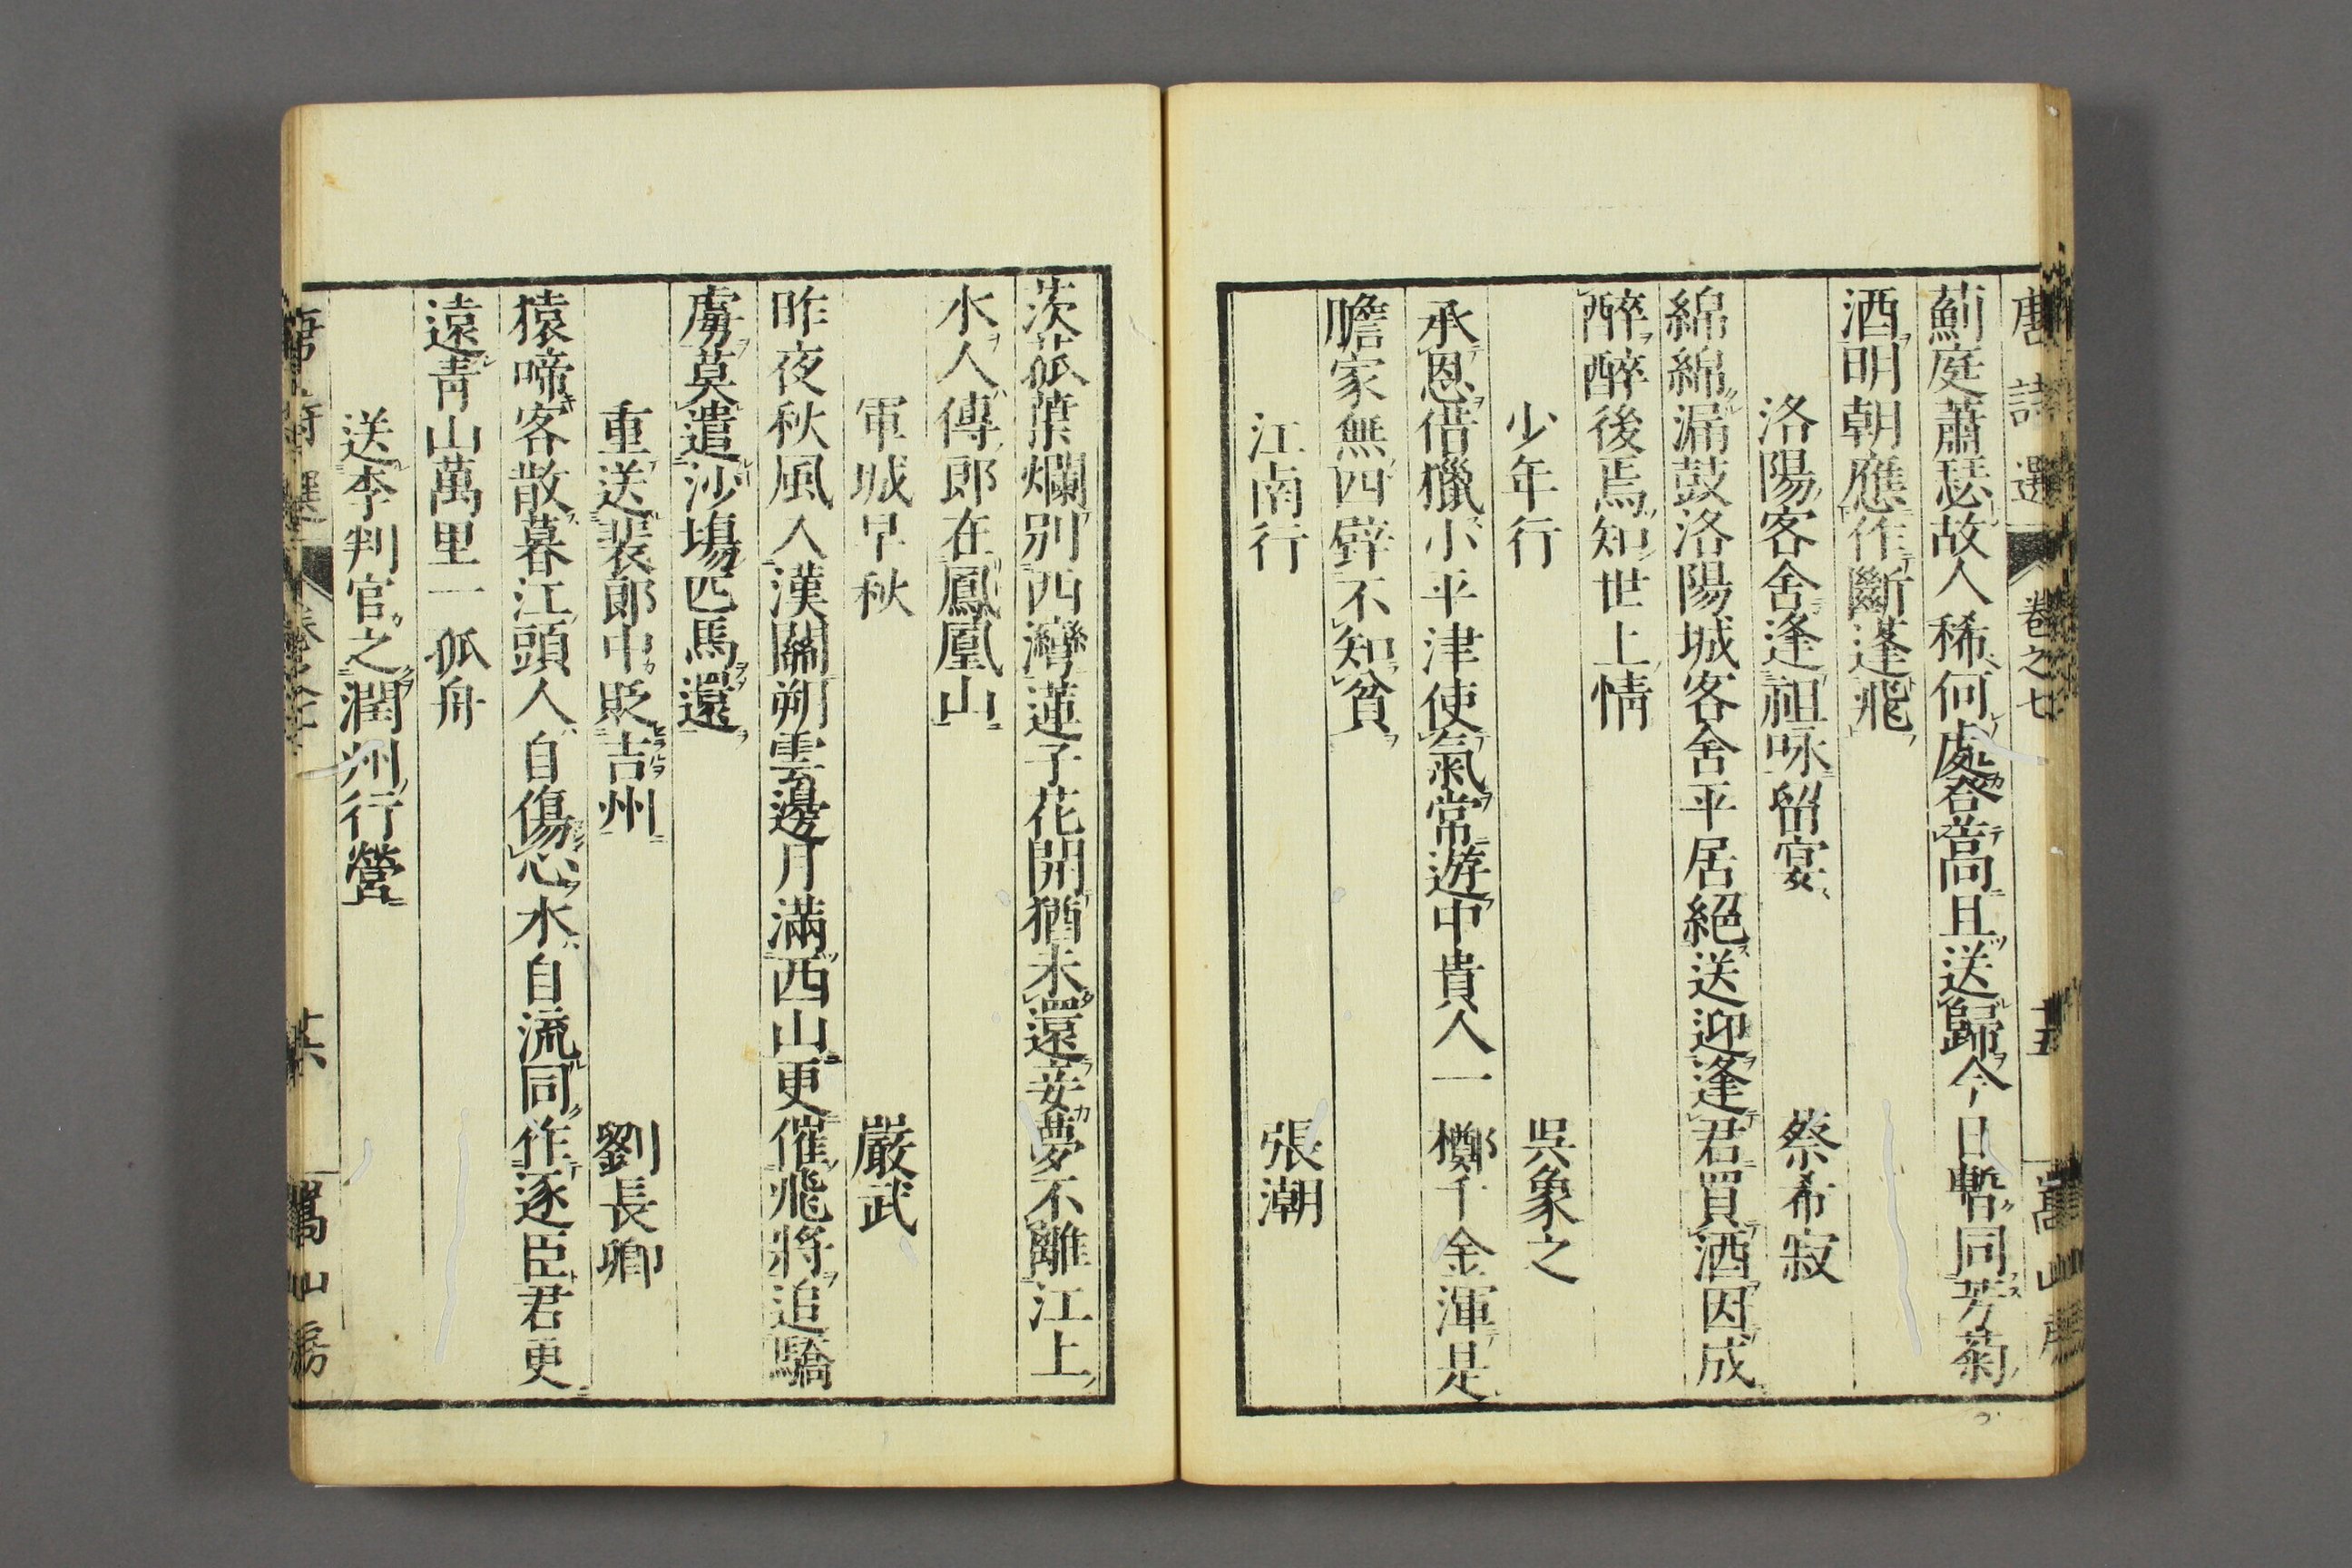 唐詩選 卷之七 十五 嵩山房
薊庭蕭瑟故人稀何處登高且送歸今日暫同芳菊
酒明朝應作斷蓬飛
洛陽客舍逢祖咏留宴 祭希寂
綿綿漏鼓洛陽城客舍平居絕送迎逢君買酒因成
醉醉後焉知世上情
少年行 吳象之
承恩借獵小平津使氣常遊中貴人一擲千金渾是
膽家無四壁不知貧
江南行 張潮
茨菰葉爛別西灣蓮子花開猶未還妾夢不離江上
水人傳郎在鳳凰山
軍城早秋 嚴武
昨夜秋風入漢關朔雲邊月滿西山更催飛將追驕
虜莫遣沙場匹馬還
重送裴郎中貶吉州 劉長卿
猿啼客散暮江頭人自傷心水自流同作逐臣君更
遠青山萬里一孤舟
送李判官之潤州行營
唐詩選 卷之七 十六 嵩山房